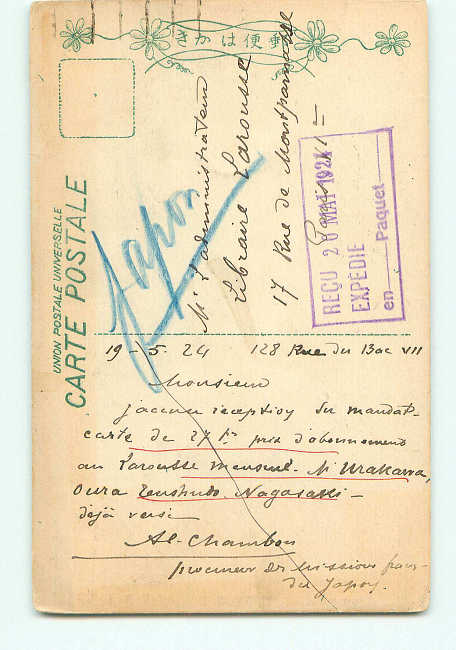 きかは便郵
UNION POSTALE UNIVERSELLE
CARTE POSTALE
Japon
Mr l'administrateur
Librairie Larousse
17 Rue de Montparnasse
Paris
REÇU 20 MAI 1924
EXPÉDIÉ
en Paquet
19-5.24 128 Rue du Bac VII
Monsieur
j'accuse réception du mandat-
carte de 27 fr prix d'abonnement
au Larousse mensuel. M Urakawa,
Oura Tenshudo. Nagasaki-
déjà versé
Al. Chambon
procureur des Missions franç-
du Japon.